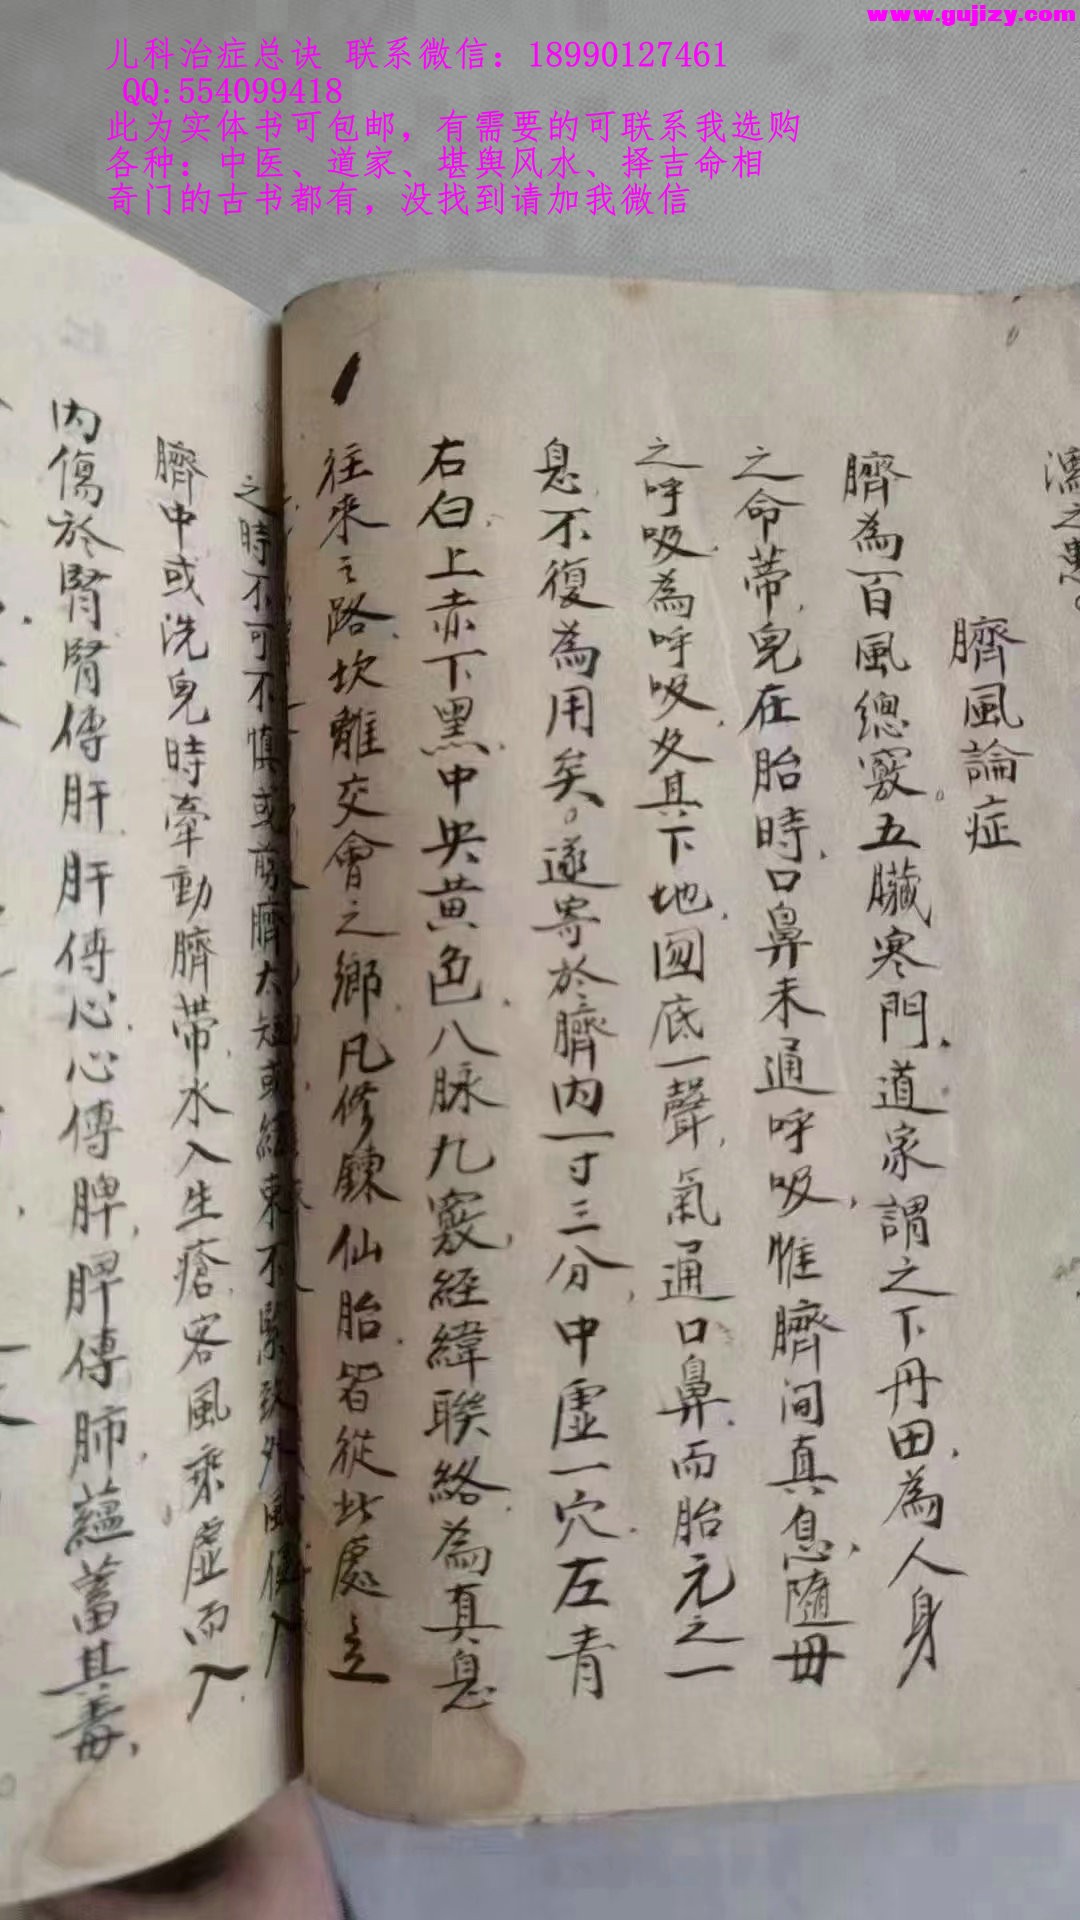 www.gujizy.com
儿科治症总诀 联系微信：18990127461
QQ:554099418
此为实体书可包邮，有需要的可联系我选购
各种：中医、道家、堪舆风水、择吉命相
奇门的古书都有，没找到请加我微信
之患。
臍風論症
臍為百風總竅。五臟寒門，道家謂之下丹田，為人身
之命蒂，兒在胎時，口鼻未通呼吸，惟臍间真息，隨毋
之呼吸，為呼吸，及其下地，囫底一聲，氣通口鼻，而胎元之一
息，不復為用矣。遂寄於臍內一寸三分，中虛一穴，左青
右白，上赤下黑，中央黄色，八脉九竅，經緯聯絡，為真息
往来之路，坎離交會之鄉，凡修鍊仙胎，皆從此處立
之時不可不慎或剪臍太短或經束不緊致外風侵入
臍中或洗兒時牽動臍带，水入生瘡，客風乘虛而入，
內傷於腎腎傳肝，肝傳心，心傳脾，脾傳肺，蘊蓄其毒，